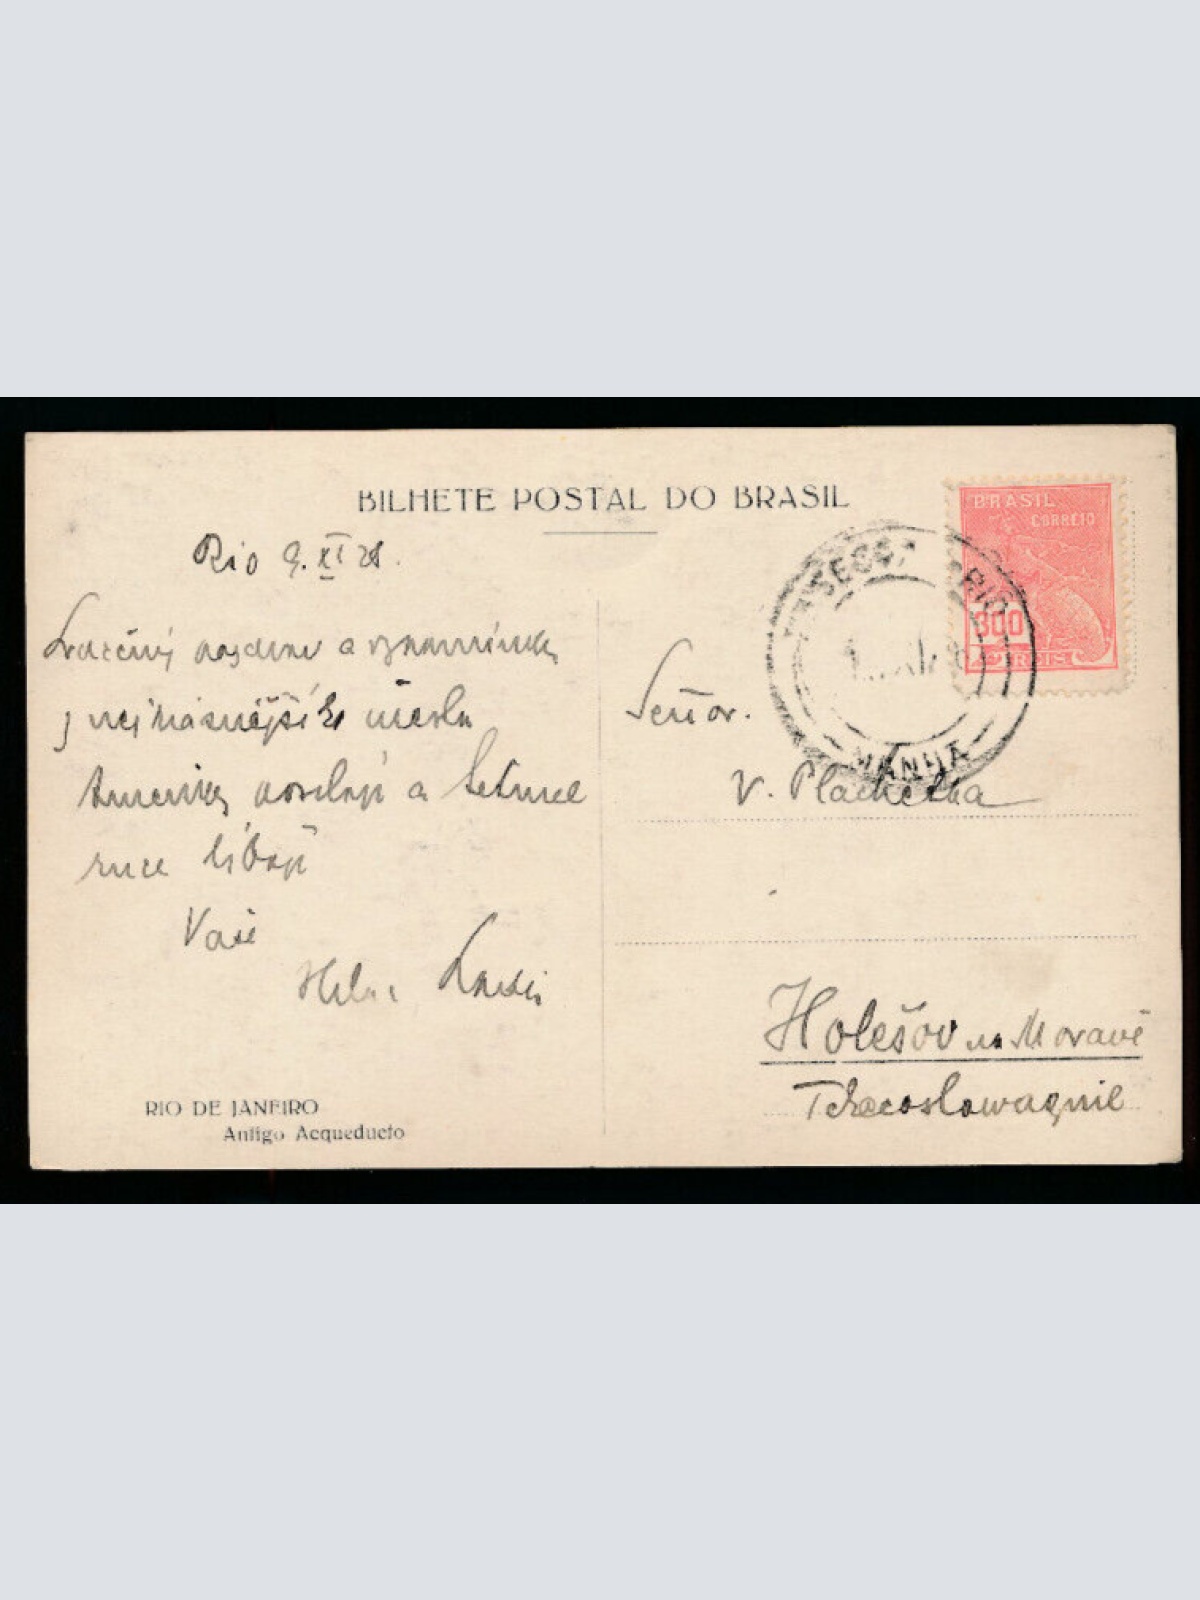 BILHETE POSTAL DO BRASIL
Rio 9. XI 28.
Srdečný pozdrav a vzpomínku
z nejkrásnějšího města
Ameriky posílají a
ruce líbají
Vaši
RIO DE JANEIRO
Antigo Acqueducto
BRASIL
CORREIO
300
REIS
MANHÃ
Señor.
V. Plachetka
Holešov na Moravě